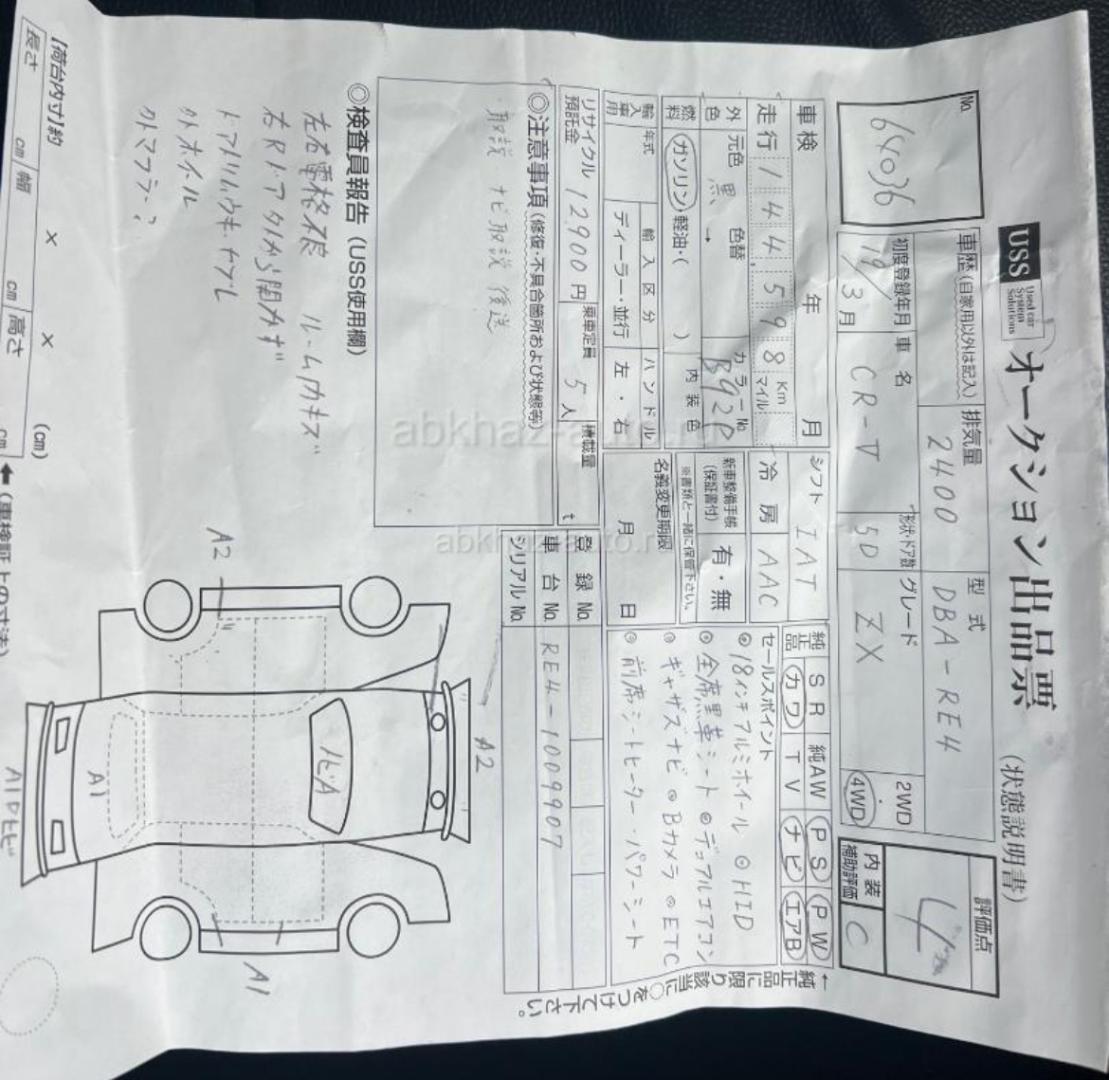 USS Used car System Solutions オークション出品票 (状態説明書)
No. 64036
車歴(自家用以外は記入) 排気量 2400 型式 DBA-RE4
初度登録年月 19/3月 車名 CR-V 形状・ドア数 5D グレード ZX 2WD 4WD
評価点 4
内装補助評価 C
車検 年 月 シフト IAT
走行 144,598 Km マイル 冷房 AAC
純正品 SR 純AW PS PW
カワ TV ナビ エアB
←純正品に限り該当に○をつけて下さい。
外色 元色 黒 → 色替 カラーNo. B92P
新車整備手帳(保証書付) 有・無
※書類と一緒に保管下さい。
燃料 ガソリン・軽油・( ) 内装色
名義変更期限 月 日
輸入車用 年式 輸入区分 ディーラー・並行 ハンドル 左・右
セールスポイント
◎18インチアルミホイール ◎HID
◎全席黒革シート ◎デュアルエアコン
◎ギャザズナビ ◎Bカメラ ◎ETC
◎前席シートヒーター・パワーシート
リサイクル預託金 12900円 乗車定員 5人 積載量 t
登録No.
車台No. RE4-1009907
シリアルNo.
◎注意事項(修復・不具合箇所および状態等)
取説・ナビ取説 後送
◎検査員報告(USS使用欄)
左右電格不良 ルーム内キズ
右Rドア 外から開かず
外ホイル
外マフラー?
A2
A2
A1
A1
【荷台内寸】約 × × (cm)
長さ cm 幅 cm 高さ cm
←(車検証上の寸法)